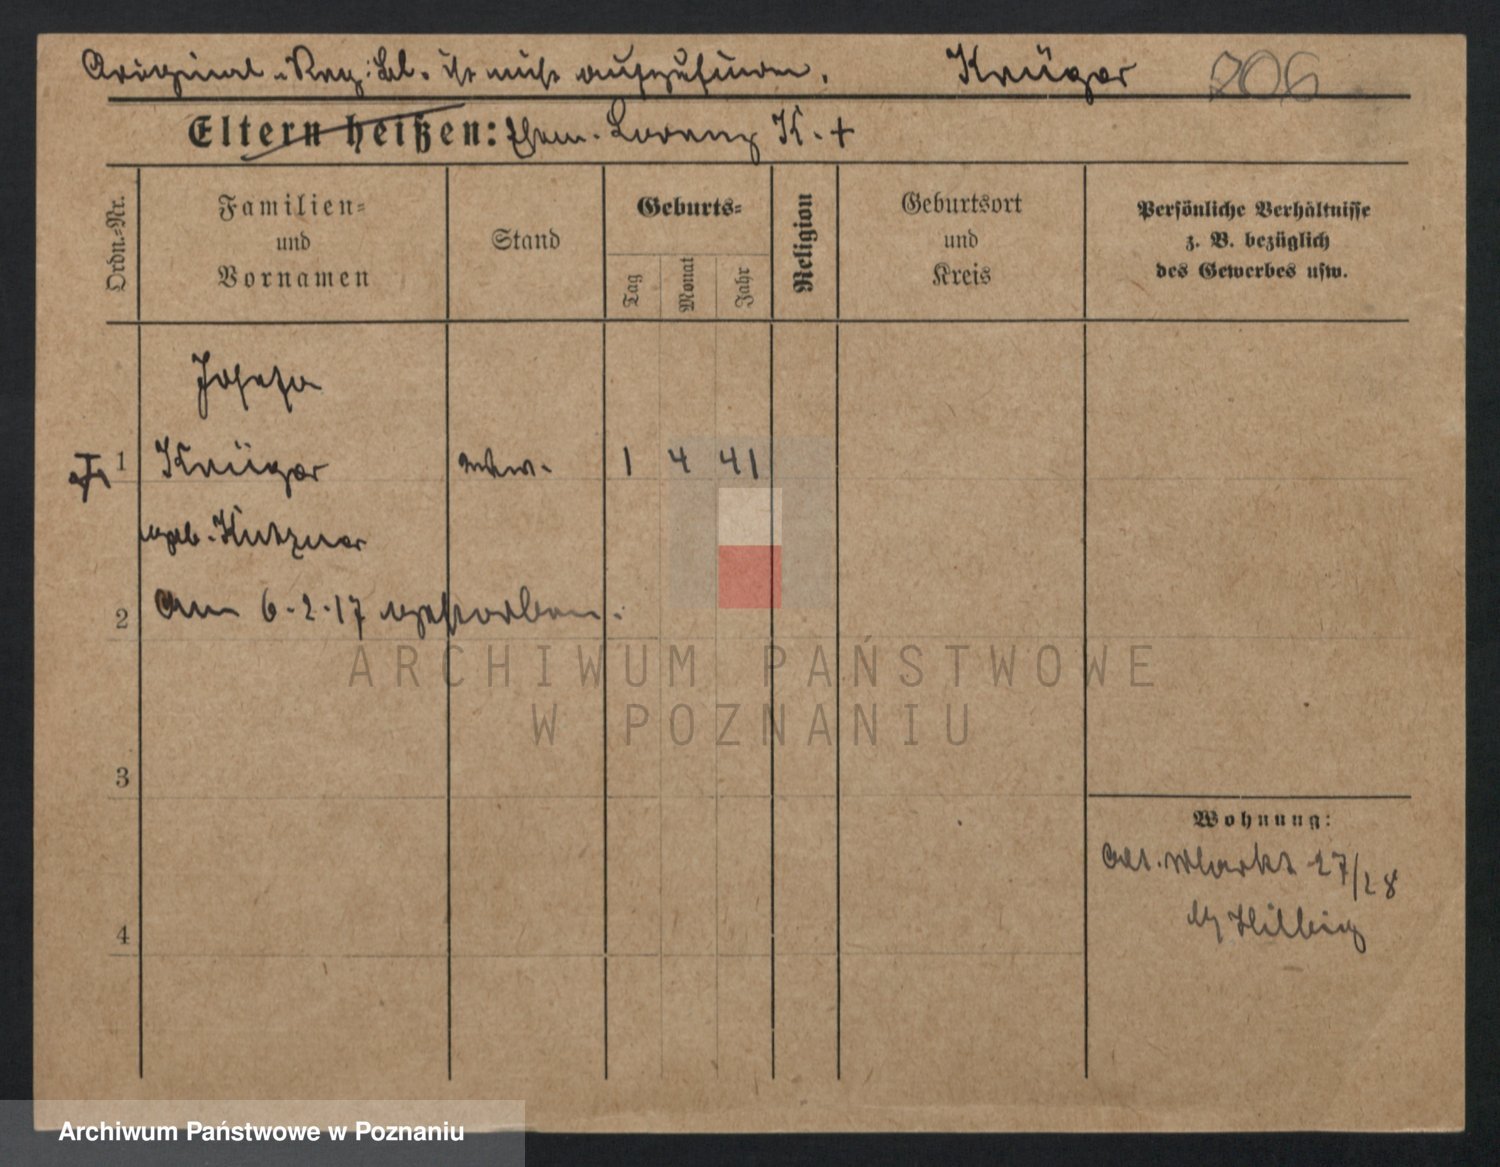 Original-Reg: Bl. ist nicht aufzufinden. Krüger 206
Eltern heißen: Ehem. Lorenz K. +
Ordn.-Nr.
Familien-
und
Vornamen
Stand
Geburts-
Tag
Monat
Jahr
Religion
Geburtsort
und
Kreis
Persönliche Verhältnisse
z. B. bezüglich
des Gewerbes usw.
Josefa
1 Krüger 1 4 41
geb. Kutzner
2 Am 6.2.17 gestorben.
ARCHIWUM PAŃSTWOWE
W POZNANIU
3
Wohnung:
Alt. Markt 27/28
4 b/ Hilbig
Archiwum Państwowe w Poznaniu